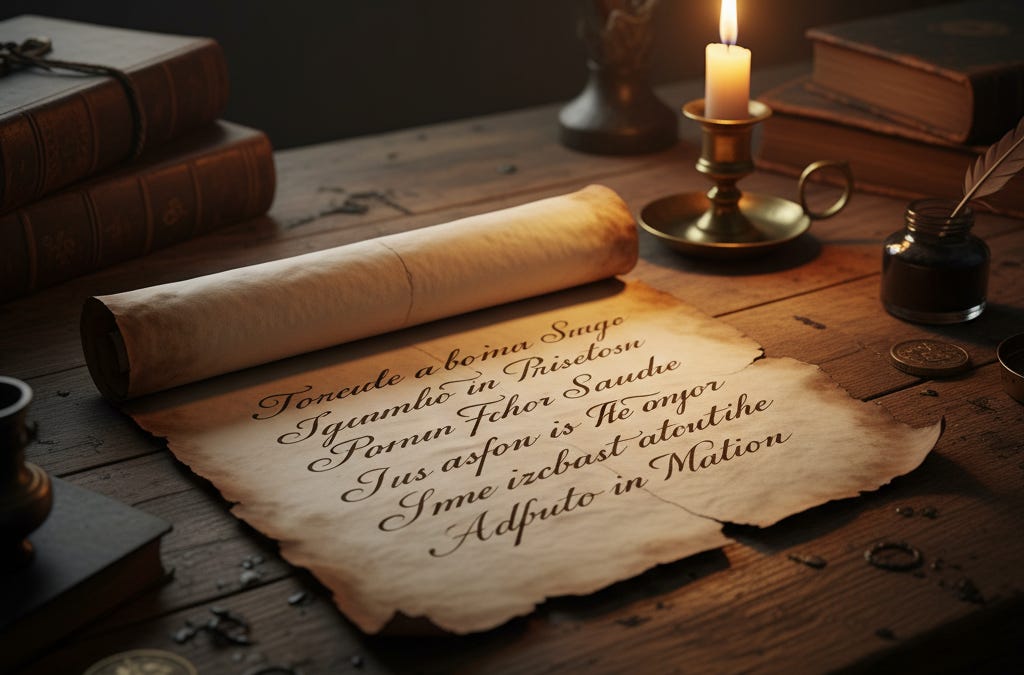 Torcule a boima Smgo
Jgumnlıō in Prisetosn
Pornın Fchor Saudıe
Jus asfon is Ħe onyor
Smne izcbast atcutihe
Adfputo in Mation